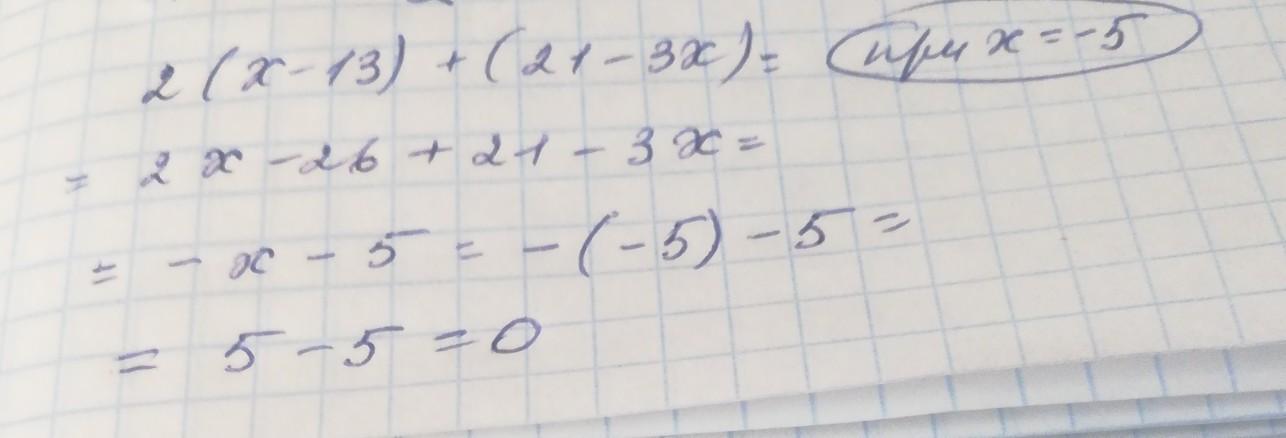 2(x-13)+(21-3x)= при x=-5
= 2x-26+21-3x=
= -x-5=-(-5)-5=
= 5-5=0